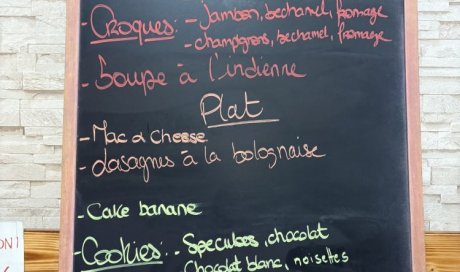 - Croques: - jambon, bechamel, fromage
- champignons, bechamel, fromage
- Soupe à l'indienne
Plat
- Mac & Cheese
- Lasagnes à la bolognaise
- Cake banane
- Cookies: - Speculoos, chocolat
Chocolat blanc, noisettes